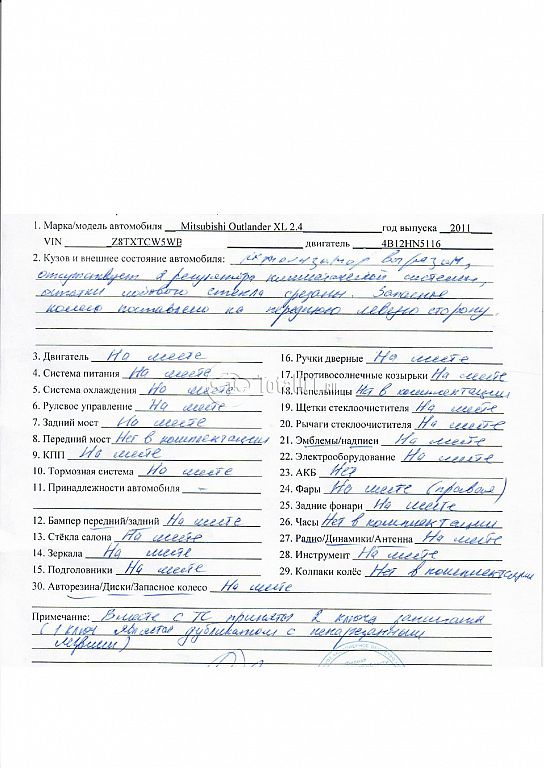 1. Марка/модель автомобиля Mitsubishi Outlander XL 2.4 год выпуска 2011
VIN Z8TXTCW5WB двигатель 4B12HN5116
2. Кузов и внешнее состояние автомобиля:
отсутствует регулятора климатической системы,
остатки лобового стекла срезаны. Запасное
колесо поставлено на переднюю левую сторону.
3. Двигатель На месте
4. Система питания На месте
5. Система охлаждения На месте
6. Рулевое управление На месте
7. Задний мост На месте
8. Передний мост Нет в комплектации
9. КПП На месте
10. Тормозная система На месте
11. Принадлежности автомобиля —
12. Бампер передний/задний На месте
13. Стёкла салона На месте
14. Зеркала На месте
15. Подголовники На месте
16. Ручки дверные На месте
17. Противосолнечные козырьки На месте
18. Пепельницы Нет в комплектации
19. Щетки стеклоочистителя На месте
20. Рычаги стеклоочистителя На месте
21. Эмблемы/надписи На месте
22. Электрооборудование На месте
23. АКБ Нет
24. Фары На месте (правая)
25. Задние фонари На месте
26. Часы Нет в комплектации
27. Радио/Динамики/Антенна На месте
28. Инструмент На месте
29. Колпаки колёс Нет в комплектации
30. Авторезина/Диски/Запасное колесо На месте
Примечание: Вместе с ТС приняты 2 ключа зажигания
(1 ключ является дубликатом с ненарезанным
лезвием)